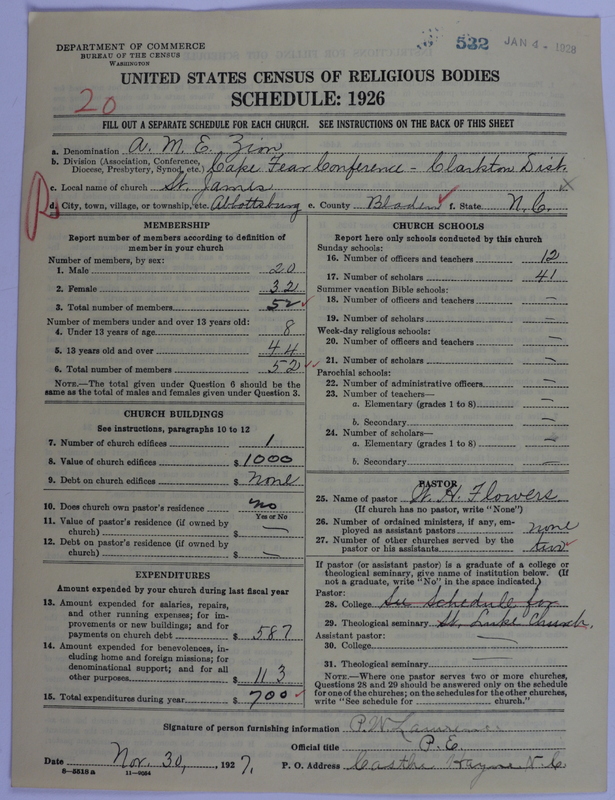 532 JAN 4 - 1928
DEPARTMENT OF COMMERCE
BUREAU OF THE CENSUS
WASHINGTON
UNITED STATES CENSUS OF RELIGIOUS BODIES
20
SCHEDULE: 1926
FILL OUT A SEPARATE SCHEDULE FOR EACH CHURCH. SEE INSTRUCTIONS ON THE BACK OF THIS SHEET
a. Denomination A. M. E. Zion
b. Division (Association, Conference, Diocese, Presbytery, Synod, etc.) Cape Fear Conference - Clarkton Dist.
c. Local name of church St. James
d. City, town, village, or township, etc. Abbottsburg e. County Bladen f. State N. C.
MEMBERSHIP
Report number of members according to definition of
member in your church
Number of members, by sex:
1. Male 20
2. Female 32
3. Total number of members 52
Number of members under and over 13 years old:
4. Under 13 years of age 8
5. 13 years old and over 44
6. Total number of members 52
NOTE.—The total given under Question 6 should be the
same as the total of males and females given under Question 3.
CHURCH BUILDINGS
See instructions, paragraphs 10 to 12
7. Number of church edifices 1
8. Value of church edifices $ 1000
9. Debt on church edifices $ None
10. Does church own pastor's residence no
Yes or No
11. Value of pastor's residence (if owned by
church) $ —
12. Debt on pastor's residence (if owned by
church) $ —
EXPENDITURES
Amount expended by your church during last fiscal year
13. Amount expended for salaries, repairs,
and other running expenses; for im-
provements or new buildings; and for
payments on church debt $ 587
14. Amount expended for benevolences, in-
cluding home and foreign missions; for
denominational support; and for all
other purposes $ 113
15. Total expenditures during year $ 700
CHURCH SCHOOLS
Report here only schools conducted by this church
Sunday schools:
16. Number of officers and teachers 12
17. Number of scholars 41
Summer vacation Bible schools:
18. Number of officers and teachers —
19. Number of scholars —
Week-day religious schools:
20. Number of officers and teachers —
21. Number of scholars —
Parochial schools:
22. Number of administrative officers —
23. Number of teachers—
a. Elementary (grades 1 to 8) —
b. Secondary —
24. Number of scholars—
a. Elementary (grades 1 to 8) —
b. Secondary —
PASTOR
25. Name of pastor W. H. Flowers
(If church has no pastor, write "None")
26. Number of ordained ministers, if any, em-
ployed as assistant pastors none
27. Number of other churches served by the
pastor or his assistants two
If pastor (or assistant pastor) is a graduate of a college or
theological seminary, give name of institution below. (If
not a graduate, write "No" in the space indicated.)
Pastor:
28. College See Schedule for
29. Theological seminary St. Luke Church.
Assistant pastor:
30. College —
31. Theological seminary —
NOTE.—Where one pastor serves two or more churches,
Questions 28 and 29 should be answered only on the schedule
for one of the churches; on the schedules for the other churches,
write "See schedule for ______ church."
Signature of person furnishing information P. W. Lawrence
Official title P. E.
Date Nov. 30, 1927. P. O. Address Castle Hayne N. C.
8—5518 a 11—9064